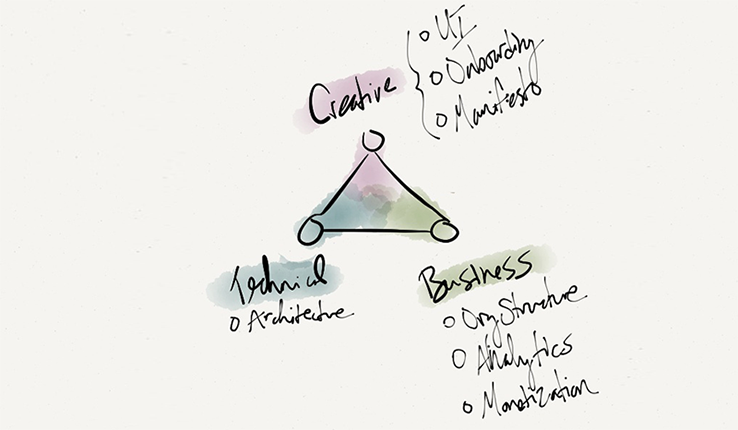 Creative
UI
Onboarding
Manifesto
Technical
Architecture
Business
Org Structure
Analytics
Monetization